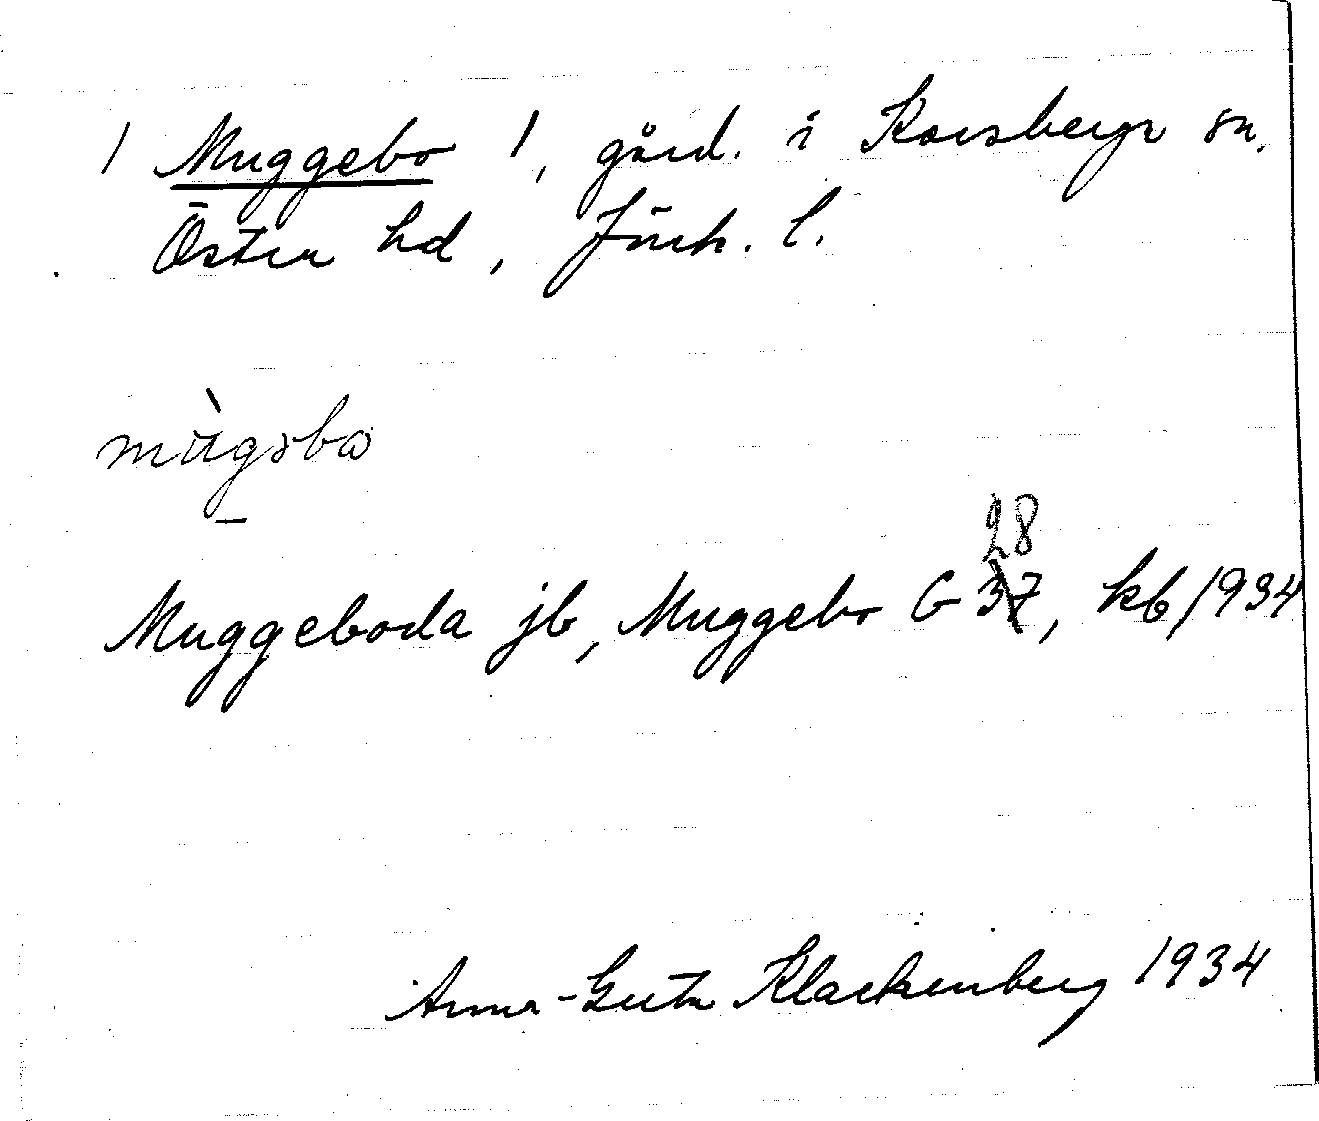 / Muggebo /, gård. i Korsberga sn.
Östra hd, Jönk. l.
mùgəba
28
Muggeboda jb, Muggebo G 37, kb/1934
Anna-Greta Klackenberg 1934